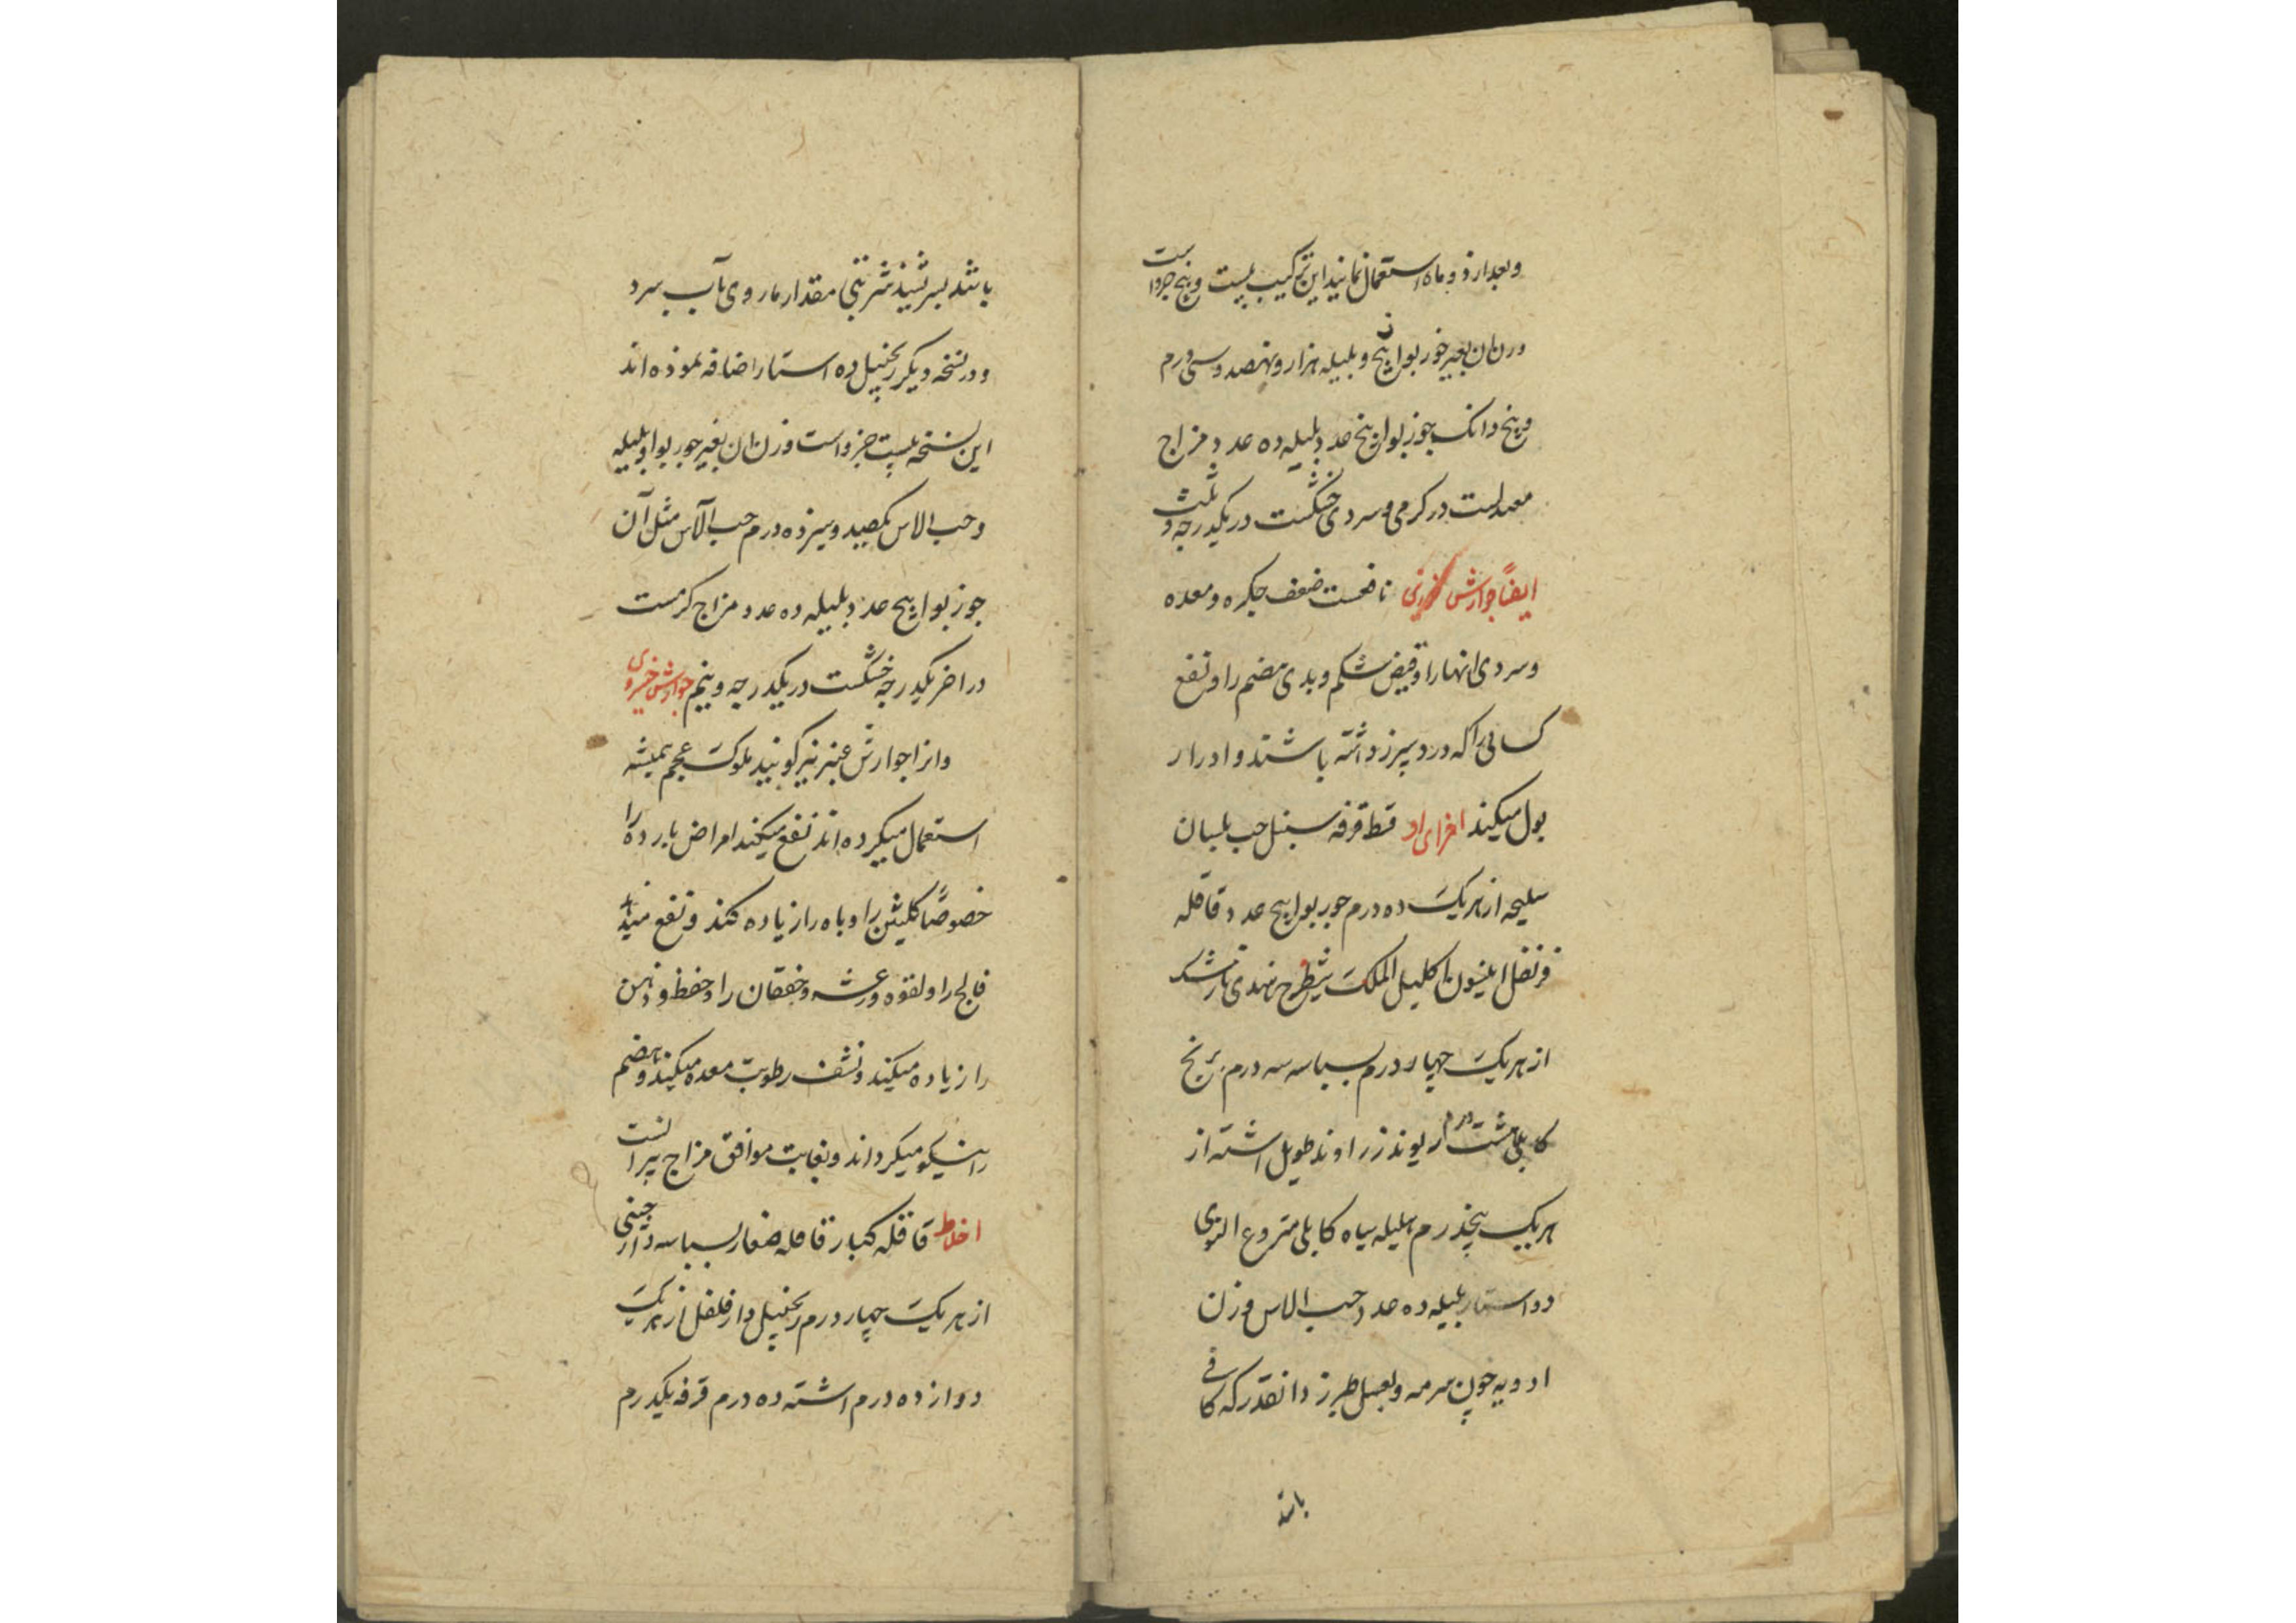 و بعد از دو ماه استعمال نمایند این ترکیب بیست و پنج جزو است
وزن ان بغیر جوز بوا پنج و بلیله هزار و نهصد و سی درم
و پنج دانک جوز بوا پنج عدد بلیله ده عدد مزاج
معتدلست در کرمی و سردی خشکست در یکدرجه و ثلث
ایضاً جوارش خوزی نافعست ضعف جکر و معده
و سردی انها را و قبض شکم و بدی هضم را و نفع
کسانی را که درد سپرز داشته باشند و ادرار
بول میکند اجزای او قسط قرفه سنبل حب بلسان
سلیخه از هریک ده درم جوز بوا پنج عدد قاقله
قرنفل انیسون اکلیل الملک شیطرج هندی نارمشک
از هریک چهار درم بسباسه سه درم برنج
کابلی هشت درم ریوند زراوند طویل اشنه از
هریک پنجدرم هلیله سیاه کابلی منزوع النوی
دو استار بلیله ده عدد حب الاس وزن
ادویه چون سرمه و بعسل طبرزد انقدر که کافی
باشد
باشد بسرشند شربتی مقدار مازوی بآب سرد
و در نسخه دیکر زنجپیل ده استار اضافه نموده اند
این نسخه بیست جزو است وزن ان بغیر جوز بوا و بلیله
و حب الاس یکصد و سیزده درم حب الآس مثل آن
جوز بوا پنج عدد بلیله ده عدد مزاج کرمست
در اخر یکدرجه خشکست در یکدرجه و نیم جوارش خسروی
و انرا جوارش عنبر نیز کویند ملوک عجم همیشه
استعمال میکرده اند نفع میکند امراض بارده را
خصوصاً کلیتین را و باه را زیاده کند و نفع میدهد
فالج را و لقوه و رعشه و خفقان را و حفظ و ذهن
را زیاده میکند و نشف رطوبت معده میکند و هضم
را نیکو میکرداند و بغایت موافق مزاج پیرانست
اخلاط قاقله کبار قاقله صغار بسباسه دارچینی
از هریک چهار درم زنجپیل دارفلفل از هریک
دوازده درم اشنه ده درم قرفه یکدرم